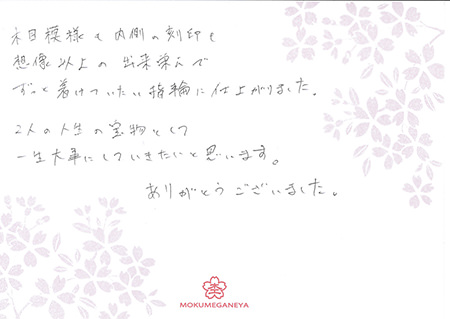 木目模様も内側の刻印も
想像以上の出来栄えで
ずっと着けていたい指輪に仕上がりました。
2人の人生の宝物として
一生大事にしていきたいと思います。
ありがとうございました。
MOKUMEGANEYA